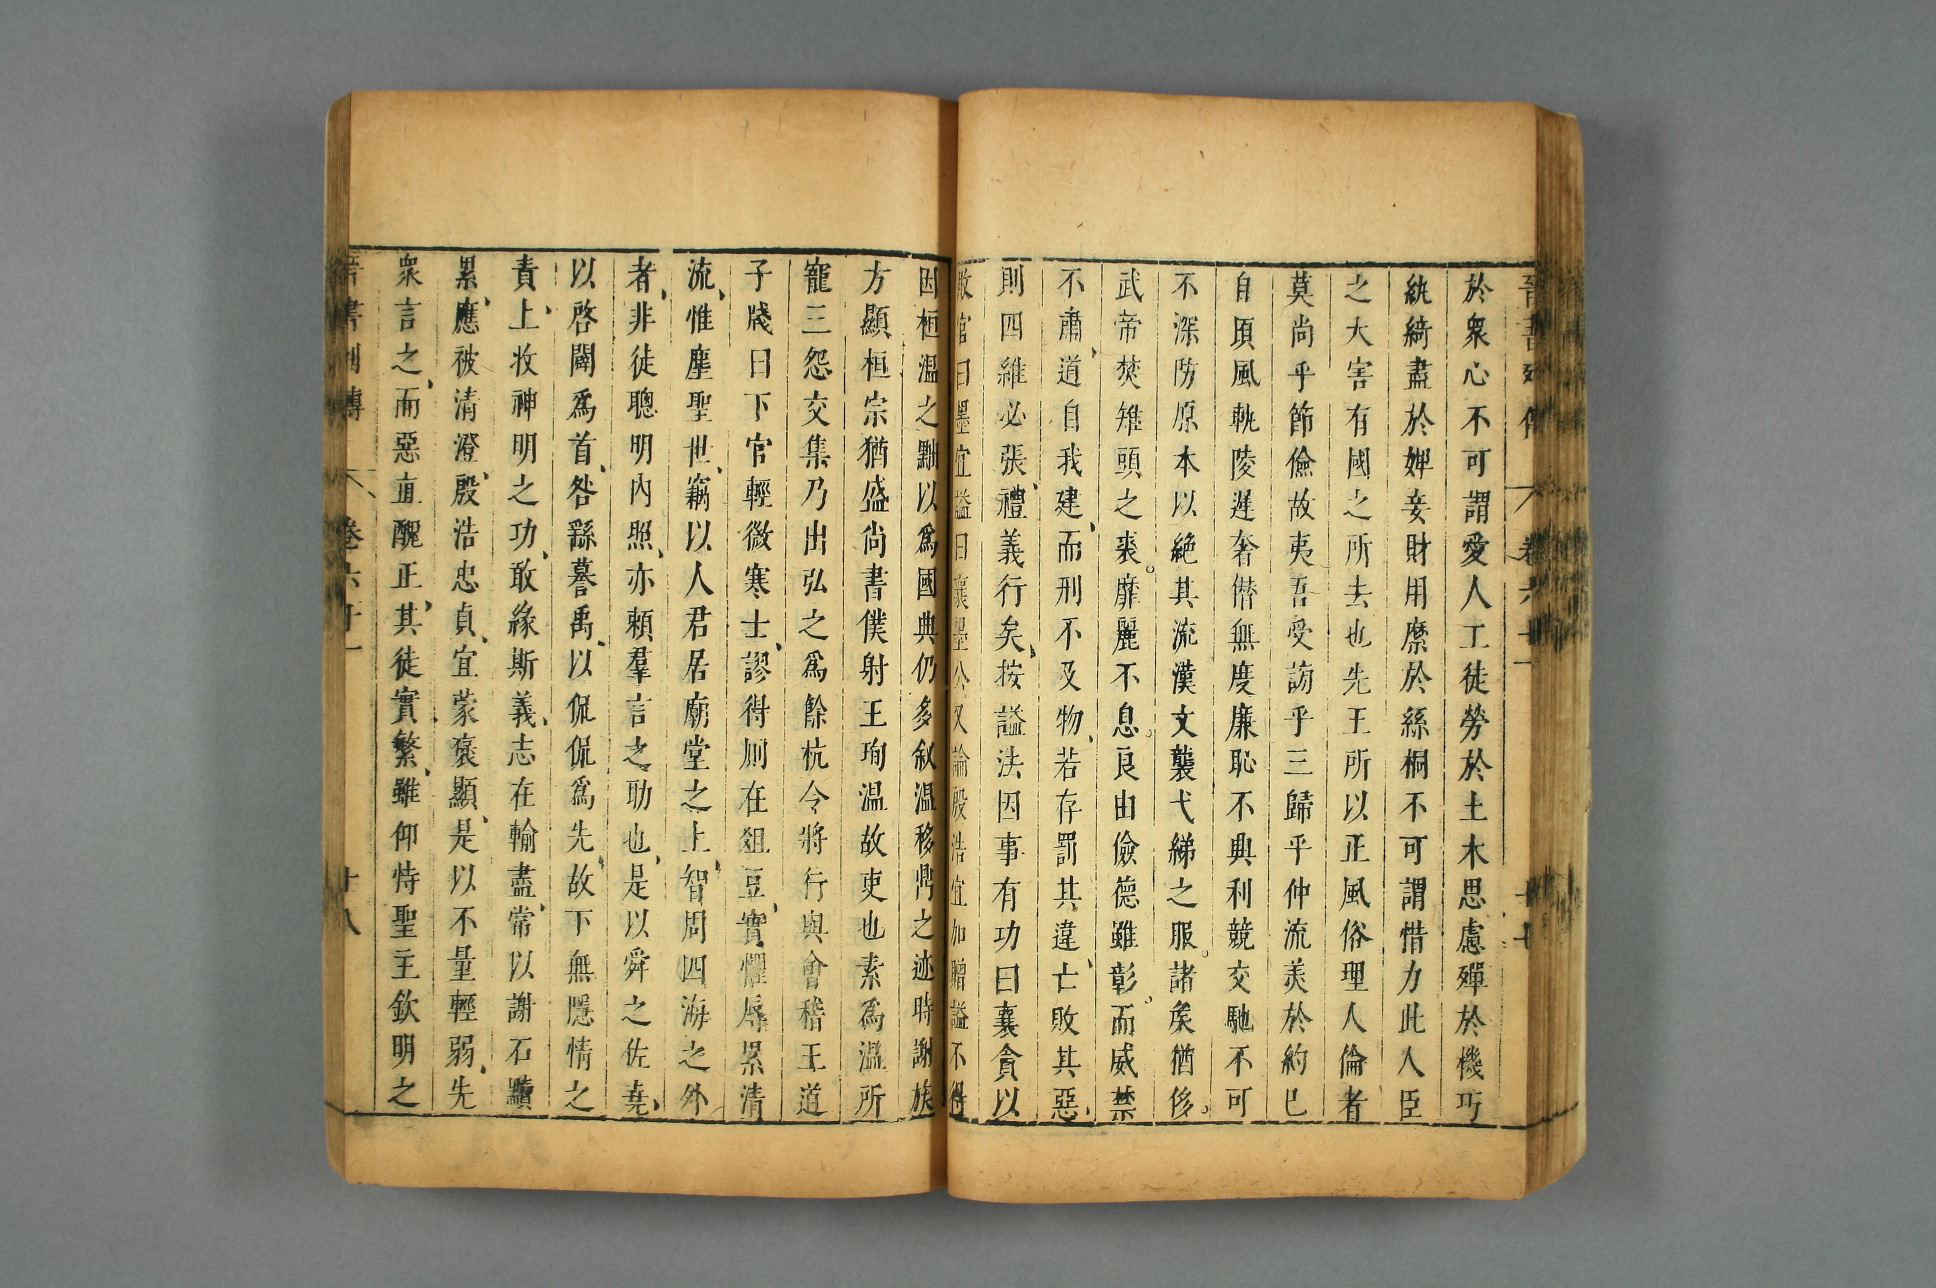 晉書列傳 卷六十一 十七
於衆心不可謂愛人工徒勞於土木思慮殫於機巧
紈綺盡於婢妾財用縻於絲桐不可謂惜力此人臣
之大害有國之所去也先王所以正風俗理人倫者
莫尚乎節儉故夷吾受謗乎三歸平仲流美於約己
自頃風軌陵遲奢僭無度廉恥不興利競交馳不可
不深防原本以絶其流漢文襲弋綈之服諸矦猶侈
武帝焚雉頭之裘靡麗不息良由儉德雖彰而威禁
不肅道自我建而刑不及物若存罰其違亡敗其惡
則四維必張禮義行矣按謚法因事有功曰襄貪以
敗官曰墨宜謚曰襄墨公又論殷浩宜加贈謚不得
因桓溫之黜以爲國典仍多敘溫移鼎之迹時謝族
方顯桓宗猶盛尚書僕射王珣温故吏也素爲溫所
寵三怨交集乃出弘之爲餘杭令將行與會稽王道
子牋曰下官輕微寒士謬得廁在俎豆實懼辱累清
流惟塵聖世竊以人君居廟堂之上智周四海之外
者非徒聰明內照亦賴羣言之助也是以舜之佐堯
以啓闢爲首咎繇謩禹以侃侃爲先故下無隱情之
責上收神明之功敢緣斯義志在輸盡常以謝石黷
累應被清澄殷浩忠貞宜蒙襃顯是以不量輕弱先
衆言之而惡直醜正其徒實繁雖仰恃聖主欽明之
晉書列傳 卷六十一 十八